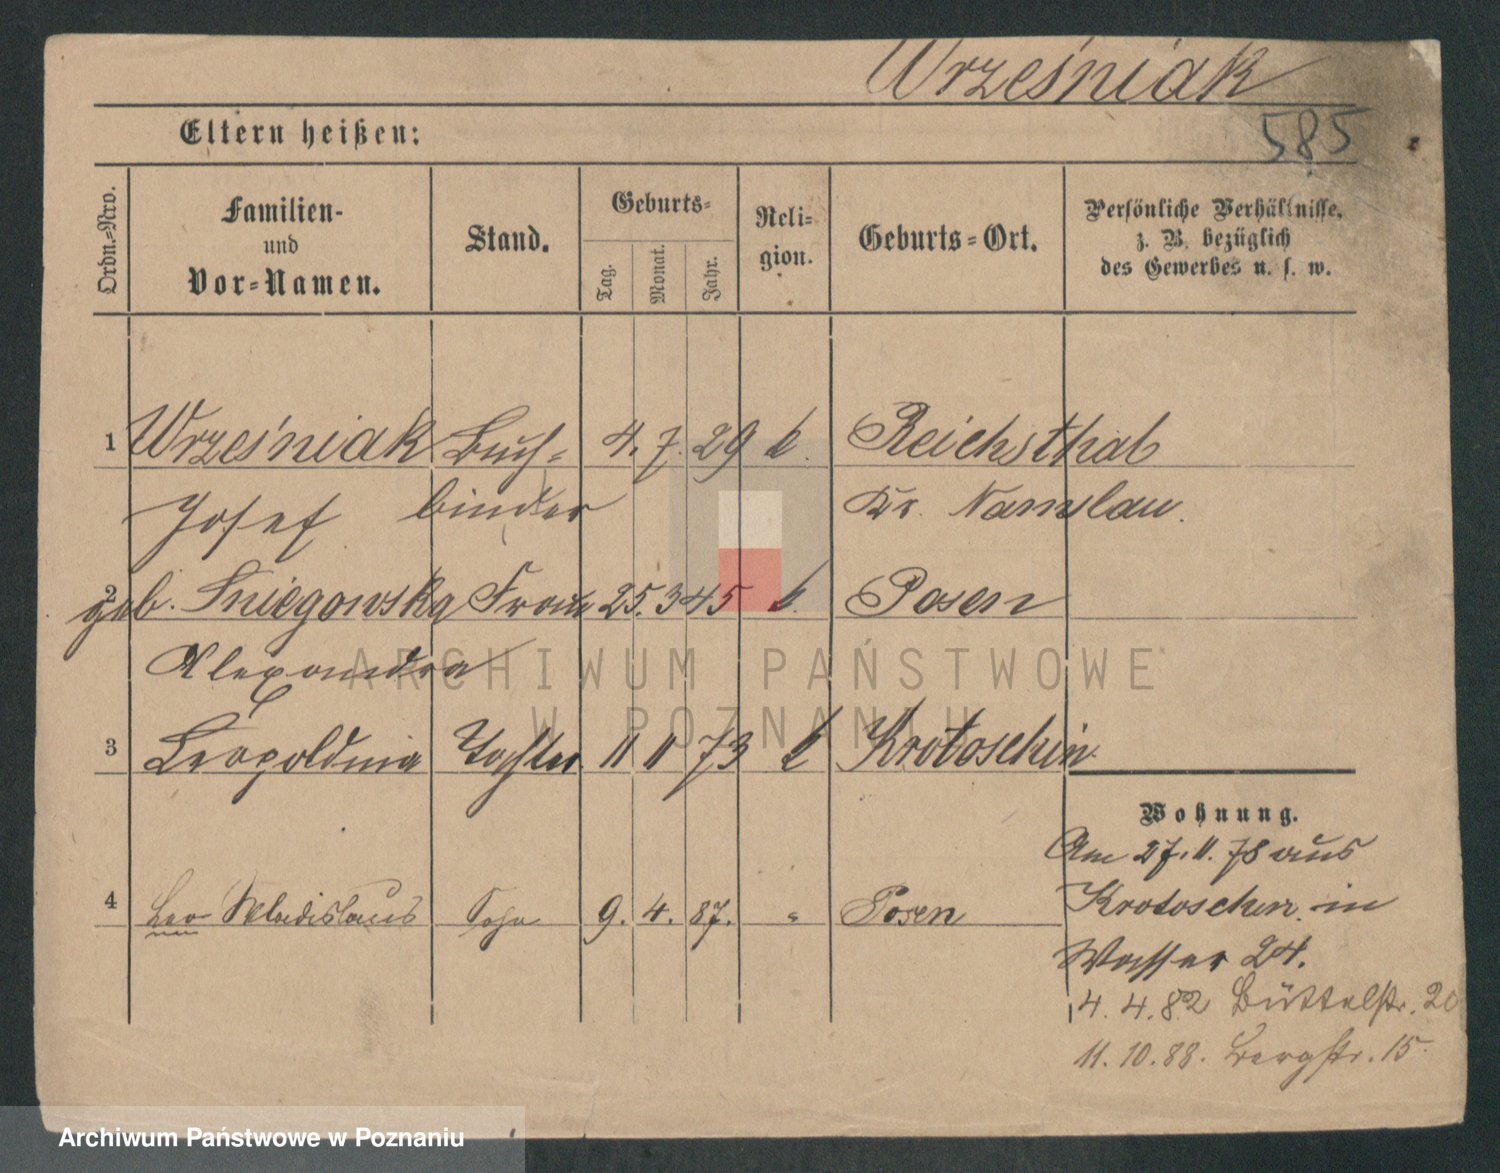 Wrześniak
Eltern heißen:
585
Ordn.=Nro.
Familien-
und
Vor=Namen.
Stand.
Geburts=
Tag.
Monat.
Jahr.
Reli=
gion.
Geburts=Ort.
Persönliche Verhältnisse,
z. B. bezüglich
des Gewerbes u. s. w.
1 Wrześniak Buch= 4. 7. 29 k. Reichsthal
Josef binder Kr. Namslau.
2 geb. Sniegowska Frau 25. 3 45 k. Posen
Alexandra
3 Leopoldina Tochter 11 11 73 k Krotoschin
Wohnung.
Am 27. 11. 78 aus
4 Leo Wladislaus Sohn 9. 4. 87. " Posen
Krotoschin in
Wasser 24.
4. 4. 82 Büttelstr. 20
11. 10. 88. Bergstr. 15.
ARCHIWUM PAŃSTWOWE
W POZNANIU
Archiwum Państwowe w Poznaniu